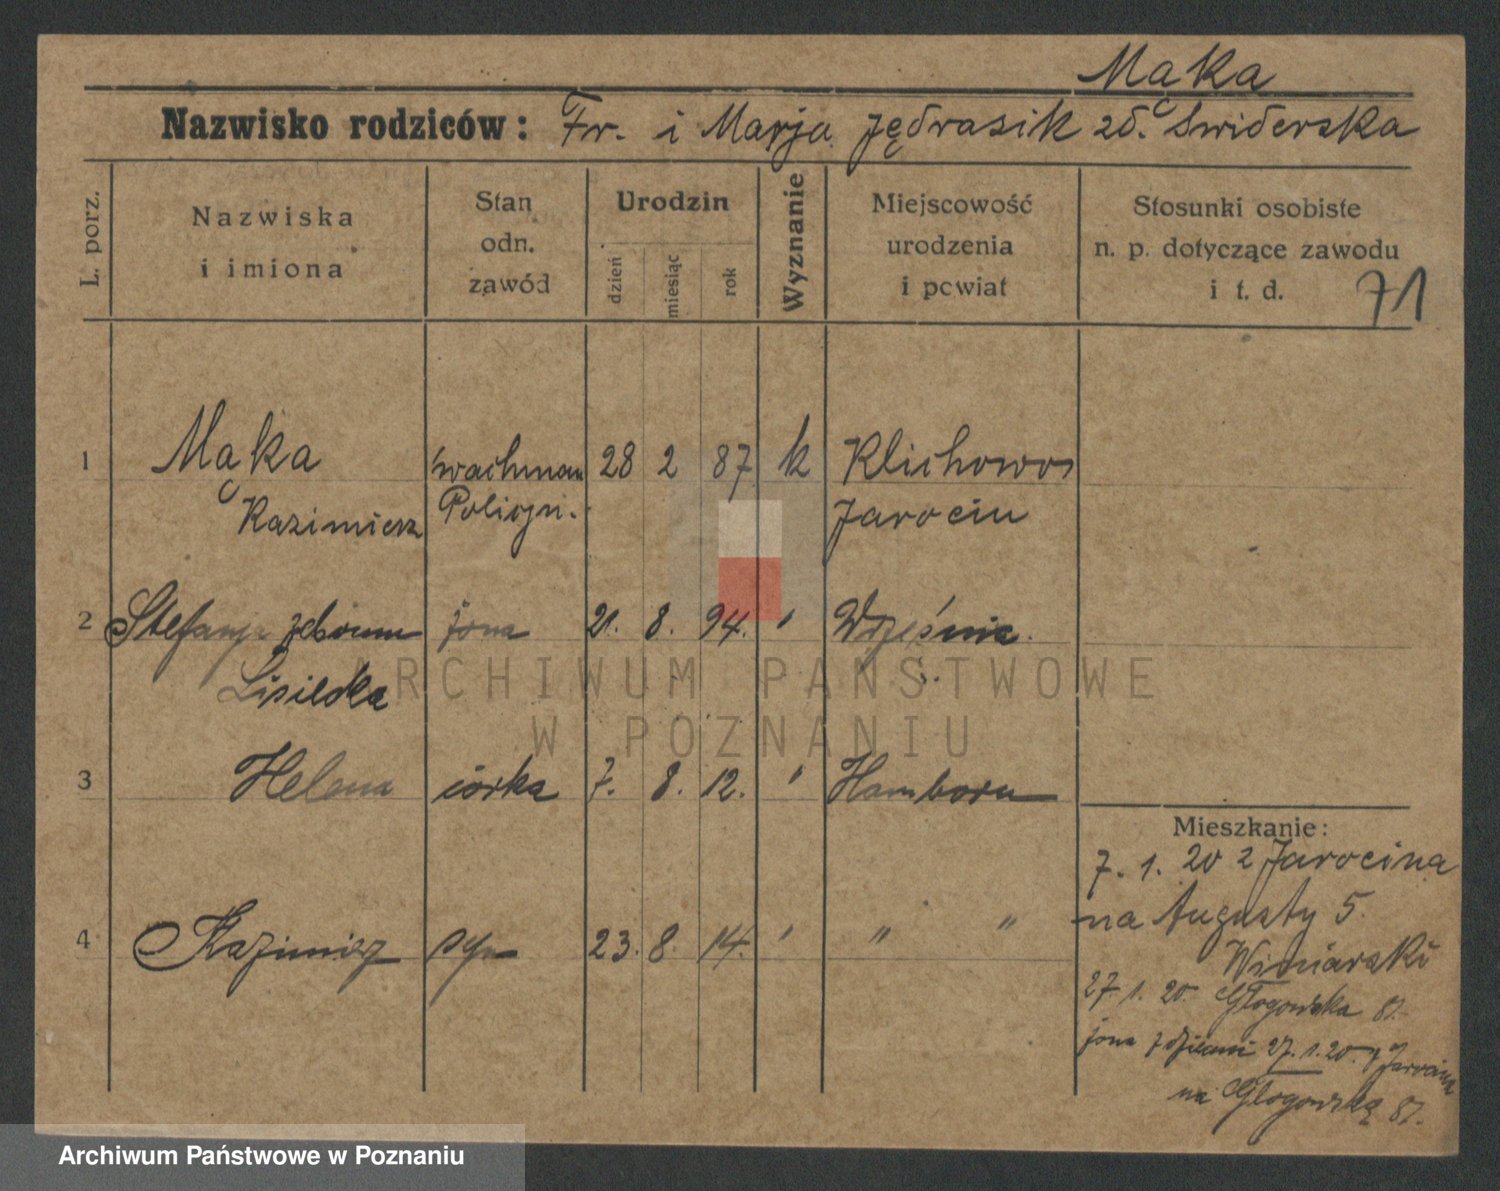 Mąka
Nazwisko rodziców: Fr. i Marja Jędrasik zd. Świderska
L. porz.
Nazwiska
i imiona
Stan
odn.
zawód
Urodzin
dzień
miesiąc
rok
Wyznanie
Miejscowość
urodzenia
i powiat
Stosunki osobiste
n. p. dotyczące zawodu
i t. d.
71
1 Mąka wachman 28 2 87 k Klichowos
Kazimierz Jarocin
2 Stefanja żona 21. 8. 94. " Września
3 Helena córka 7. 8. 12. " Hamborn
4 Kazimierz syn 23. 8. 14. " " "
Mieszkanie:
7. 1. 20 z Jarocina
na Augusty 5.
Winiarski
27. 1. 20. Głogowska 81.
żona z dziećmi 27. 1. 20. z Jarocina
na Głogowską 81.
ARCHIWUM PAŃSTWOWE
W POZNANIU
Archiwum Państwowe w Poznaniu